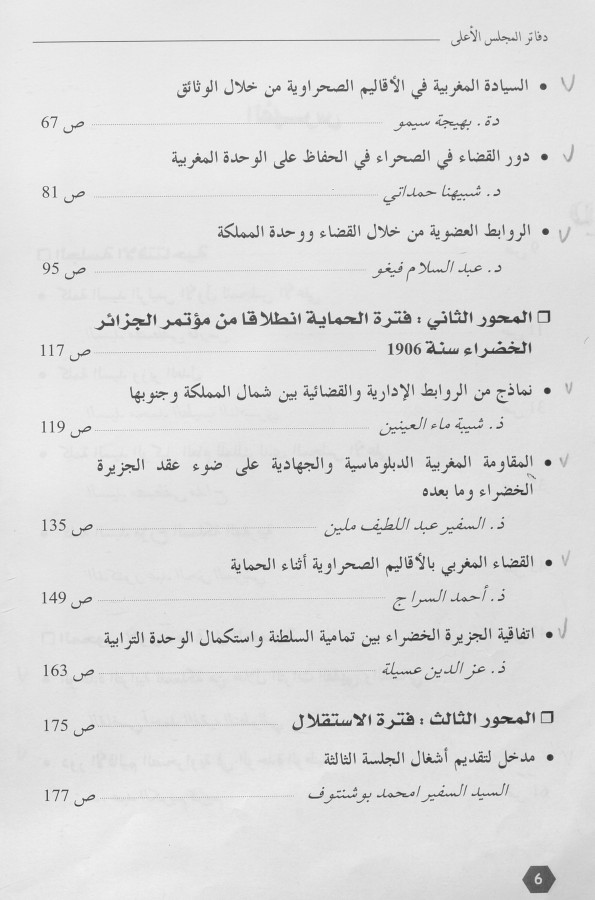 دفاتر المجلس الأعلى
• السيادة المغربية في الأقاليم الصحراوية من خلال الوثائق
دة. بهيجة سيمو ص 67
• دور القضاء في الصحراء في الحفاظ على الوحدة المغربية
د. شبيهنا حمداتي ص 81
• الروابط العضوية من خلال القضاء ووحدة المملكة
د. عبد السلام فيغو ص 95
❒ المحور الثاني : فترة الحماية انطلاقا من مؤتمر الجزائر
الخضراء سنة 1906 ص 117
• نماذج من الروابط الإدارية والقضائية بين شمال المملكة وجنوبها
ذ. شيبة ماء العينين ص 119
• المقاومة المغربية الدبلوماسية والجهادية على ضوء عقد الجزيرة
الخضراء وما بعده
ذ. السفير عبد اللطيف ملين ص 135
• القضاء المغربي بالأقاليم الصحراوية أثناء الحماية
ذ. أحمد السراج ص 149
• اتفاقية الجزيرة الخضراء بين تمامية السلطنة واستكمال الوحدة الترابية
ذ. عز الدين عسيلة ص 163
❒ المحور الثالث : فترة الاستقلال ص 175
• مدخل لتقديم أشغال الجلسة الثالثة
السيد السفير امحمد بوشنتوف ص 177
6